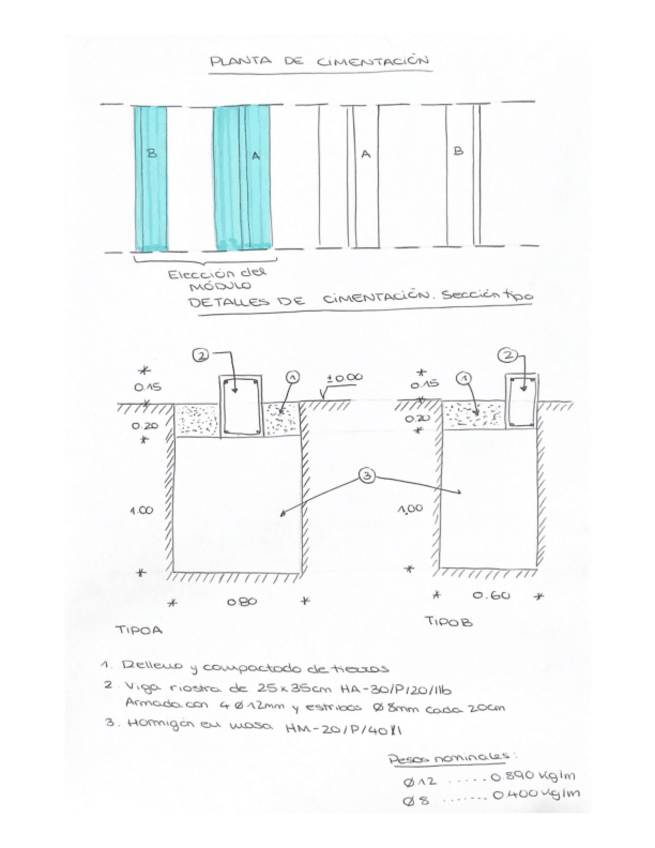 PLANTA DE CIMENTACIÓN
B
A
A
B
Elección del
MÓDULO
DETALLES DE CIMENTACIÓN. Sección tipo
2
2
1
±0.00
1
0.15
0.15
0.20
0.20
3
1.00
1,00
0.80
0.60
TIPO A
TIPO B
1. Relleno y compactado de tierras
2 Viga riostra de 25x35cm HA-30/P/20/IIb
Armada con 4 Ø 12mm y estribos Ø 8mm cada 20cm
3. Hormigón en masa HM-20/P/40/I
Pesos nominales:
Ø 12 ..... 0.890 Kg/m
Ø 8 ....... 0.400 Kg/m